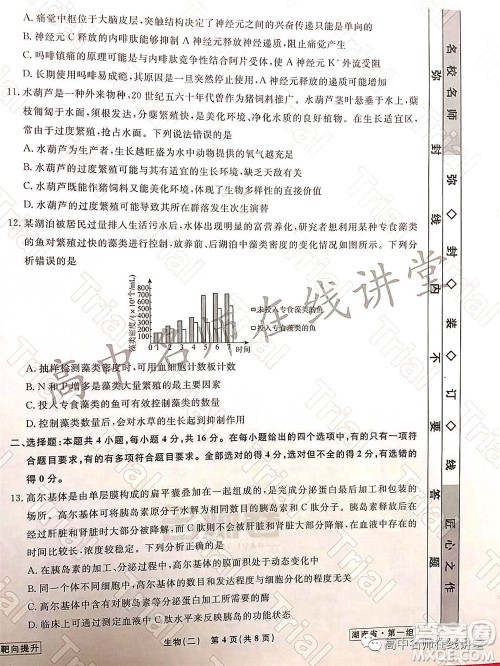 A. 痛觉中枢位于大脑皮层，痛觉产生过程中神经元之间的兴奋传递只能是单向的
B. 神经元 C 释放的内啡肽能够抑制 A 神经元释放神经递质，阻止痛觉产生
C. 吗啡镇痛的原理可能是与内啡肽受体结合，促进 A 神经元 K⁺ 外流受阻
D. 长期使用吗啡易成瘾，停止使用时可能会导致 A 神经元释放的递质增加
11. 水葫芦是一种外来物种，20 世纪五六十年代曾作为猪饲料推广。水葫芦茎叶悬垂于水上，蘖
枝铺匐于水面，须根发达，分蘖繁殖快，管理粗放，是美化环境、净化水质的良好植物。由于繁
殖力极强，抢占水面。下列说法错误的是
A. 水葫芦为生产者，生长越旺盛为水中动物提供的氧气越充足
B. 水葫芦的过度繁殖可能与其在当地缺少天敌有关
C. 水葫芦既能作猪饲料又能美化环境，体现了生物多样性的直接价值
D. 水葫芦可能因其物种优势而影响所在群落的演替方向
12. 某湖泊被居民过量排入生活污水后，水体出现明显的富营养化，研究者想利用某种专食藻类
的鱼对繁殖过快的藻类进行控制，放养前、后湖泊中藻类的密度的变化情况如图所示。下列分
析错误的是
藻类密度/(×10⁴个/mL)
8 000
7 000
6 000
5 000
4 000
3 000
2 000
1 000
0
1 2 3 4 5 6 7 时间
未投入专食藻类的鱼
投入专食藻类的鱼
A. 抽样检测藻类密度时，可用血细胞计数板计数
B. N 和 P 增多是藻类大量繁殖的最主要因素
C. 投入专食藻类的鱼可有效抑制藻类数量的增加
D. 藻类的大量繁殖，会对水草的生长起到抑制作用
二、选择题：本题共 4 小题，每小题 4 分，共 16 分。在每小题给出的四个选项中，有的只有一项符
合题目要求，有的有多项符合题目要求。全部选对的得 4 分，选对但不全的得 2 分，有选错的
得 0 分。
13. 高尔基体是由单层膜构成的扁平囊叠加在一起组成的，是完成分泌蛋白最后加工和包装的场
所。人体高尔基体可将胰岛素原转变为胰岛素和 C 肽，然后一起分泌到胰岛 B 细胞外。胰岛素
经过肝脏和肾脏时大部分被分解，而 C 肽则不会被肝脏和肾脏中的酶分解，且在血液中存在的
时间较长，较稳定。下列分析正确的是
A. 在胰岛素的加工、分泌过程中，会发生膜成分的更新
B. 不同类型的细胞中，高尔基体的数目和发达程度可能不同
C. 糖尿病人体内 C 肽水平升高，表明其体内的胰岛素水平升高
D. 对于注射胰岛素的患者，可通过测定 C 肽水平来反映患者自身产生胰岛素的能力
生物（二） 第 4 页（共 8 页）
靶向提升
湖南省·第一组
名校名师
弥封线内不要答题
弥◇封◇装◇订◇线
匠心之作
高中名师在线讲堂
高中名师在线讲堂
Trial